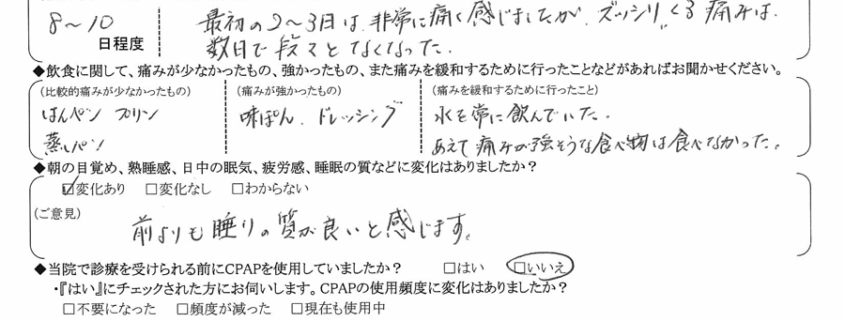 8〜10
日程度
最初の2〜3日は、非常に痛く感じましたが、ズッシリくる痛みは、
数日で段々となくなった。
◆飲食に関して、痛みが少なかったもの、強かったもの、また痛みを緩和するために行ったことなどがあればお聞かせください。
(比較的痛みが少なかったもの)
はんぺん プリン
蒸しパン
(痛みが強かったもの)
味ぽん、ドレッシング
(痛みを緩和するために行ったこと)
水を常に飲んでいた。
あえて痛みの強そうな食べ物は食べなかった。
◆朝の目覚め、熟睡感、日中の眠気、疲労感、睡眠の質などに変化はありましたか？
☑変化あり □変化なし □わからない
(ご意見)
前よりも睡りの質が良いと感じます。
◆当院で診療を受けられる前にCPAPを使用していましたか？ □はい □いいえ
・『はい』にチェックされた方にお伺いします。CPAPの使用頻度に変化はありましたか？
□不要になった □頻度が減った □現在も使用中